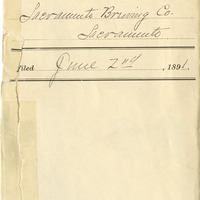 Sacramento Brewing Co.
Sacramento
Filed June 2nd, 1891.